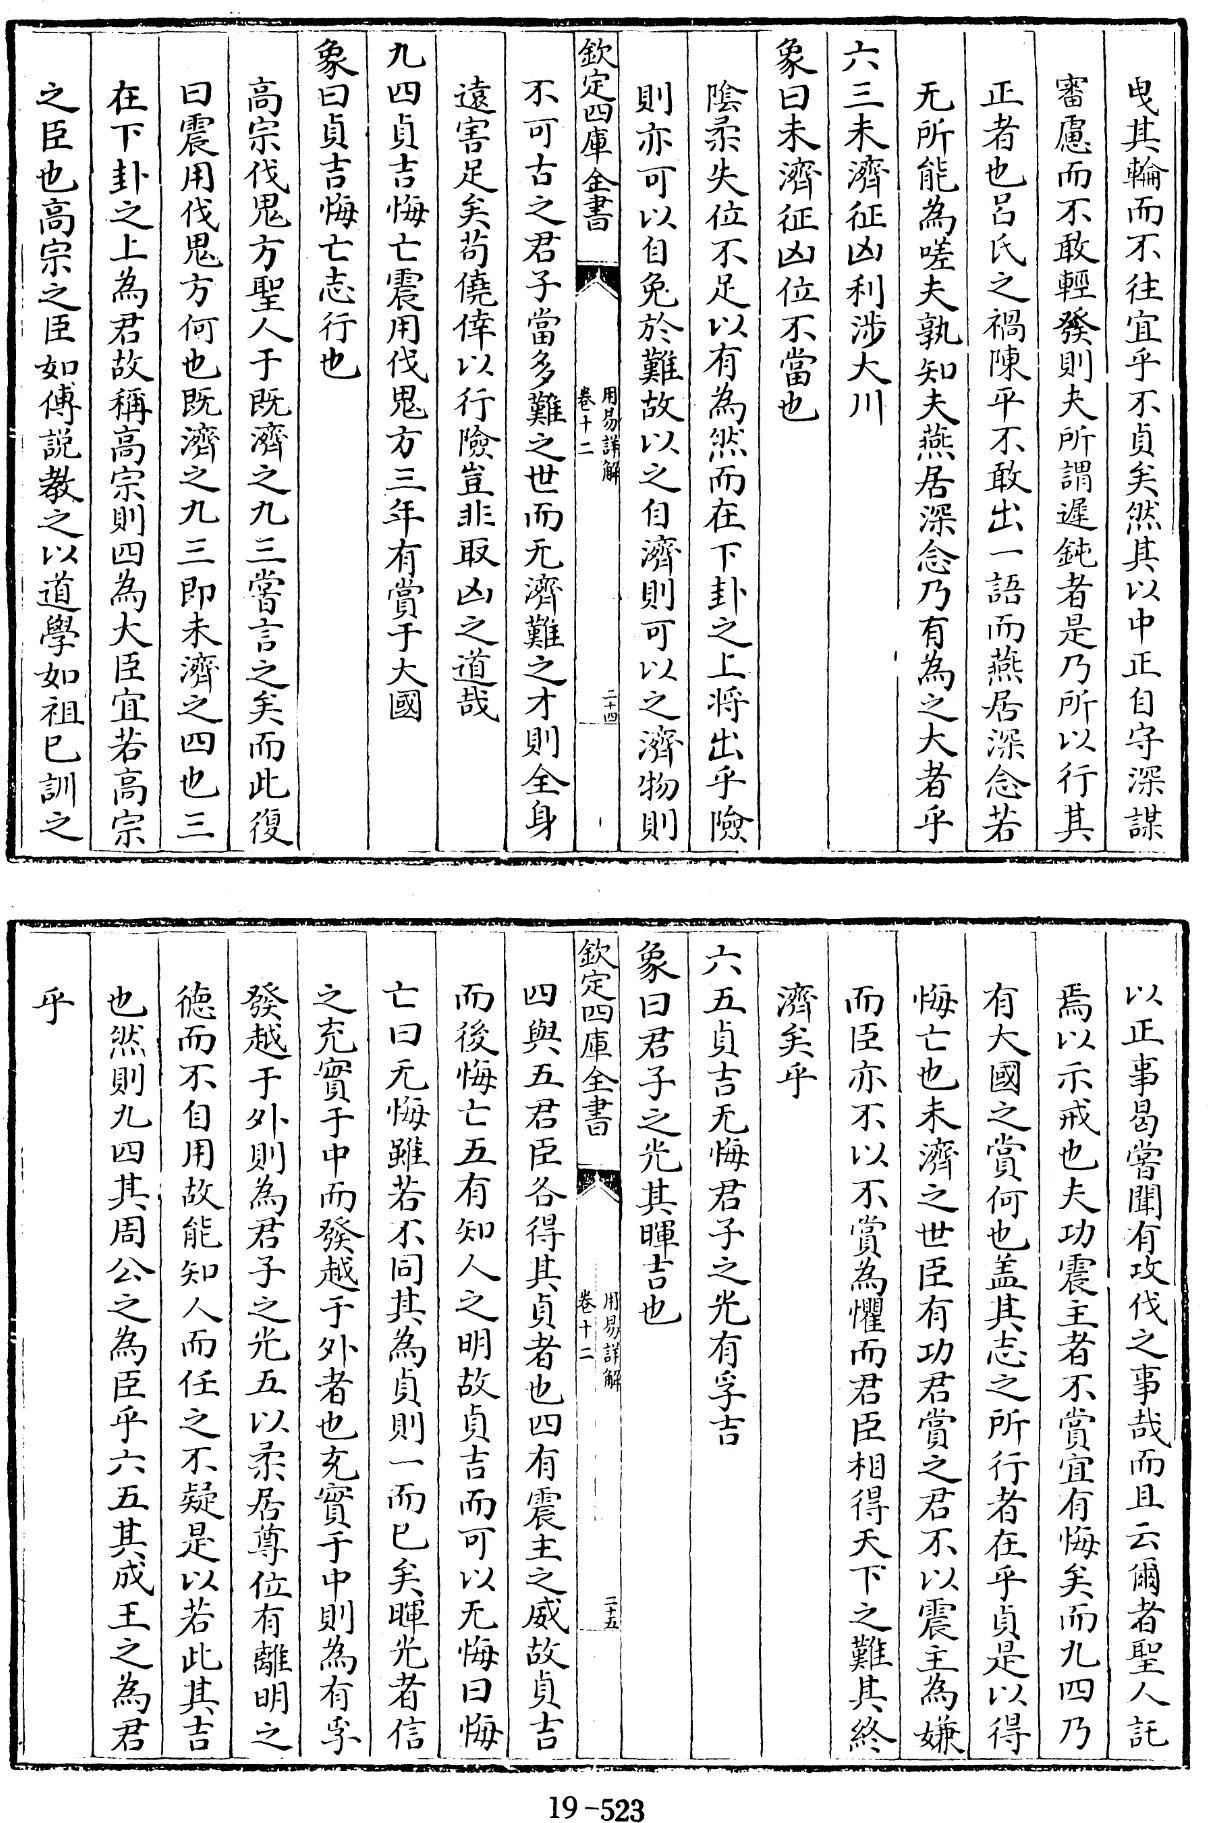 曵其輪而不往宜乎不貞矣然其以中正自守深謀
審慮而不敢輕發則夫所謂遲鈍者是乃所以行其
正者也呂氏之禍陳平不敢出一語而燕居深念若
无所能為嗟夫孰知夫燕居深念乃有為之大者乎
六三未濟征凶利涉大川
象曰未濟征凶位不當也
陰柔失位不足以有為然而在下卦之上將出乎險
則亦可以自免於難故以之自濟則可以之濟物則
欽定四庫全書
用易詳解
卷十二
二十四
不可古之君子當多難之世而无濟難之才則全身
遠害足矣苟僥倖以行險豈非取凶之道哉
九四貞吉悔亡震用伐鬼方三年有賞于大國
象曰貞吉悔亡志行也
高宗伐鬼方聖人于既濟之九三嘗言之矣而此復
曰震用伐鬼方何也既濟之九三即未濟之四也三
在下卦之上為君故稱高宗則四為大臣宜若高宗
之臣也高宗之臣如傅説教之以道學如祖已訓之
以正事曷嘗聞有攻伐之事哉而且云爾者聖人託
焉以示戒也夫功震主者不賞宜有悔矣而九四乃
有大國之賞何也盖其志之所行者在乎貞是以得
悔亡也未濟之世臣有功君賞之君不以震主為嫌
而臣亦不以不賞為懼而君臣相得天下之難其終
濟矣乎
六五貞吉无悔君子之光有孚吉
象曰君子之光其暉吉也
欽定四庫全書
用易詳解
卷十二
二十五
四與五君臣各得其貞者也四有震主之威故貞吉
而後悔亡五有知人之明故貞吉而可以无悔曰悔
亡曰无悔雖若不同其為貞則一而已矣暉光者信
之充實于中而發越于外者也充實于中則為有孚
發越于外則為君子之光五以柔居尊位有離明之
德而不自用故能知人而任之不疑是以若此其吉
也然則九四其周公之為臣乎六五其成王之為君
乎
19-523